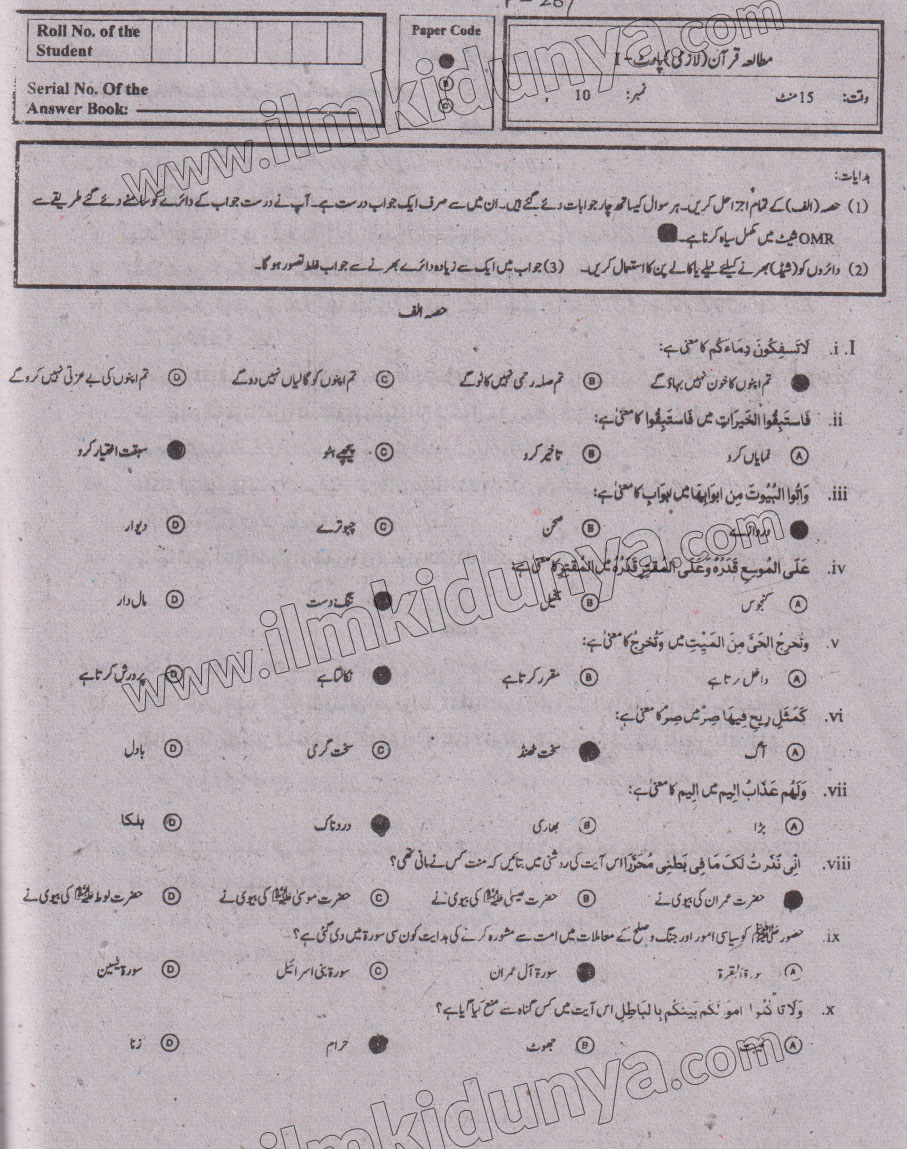 Roll No. of the
Student
Serial No. Of the
Answer Book:
Paper Code
B
C
مطالعہ قرآن (لازمی) پارٹ - I
وقت: 15 منٹ نمبر: 10
ہدایات:
(1) حصہ (الف) کے تمام اجزا حل کریں۔ ہر سوال کیساتھ چار جوابات دئے گئے ہیں۔ ان میں سے صرف ایک جواب درست ہے۔ آپ نے درست جواب کے دائرے کو سامنے دئے گئے طریقے سے
OMR شیٹ میں مکمل سیاہ کرنا ہے۔
(2) دائروں کو (شیڈ) بھرنے کیلئے نیلے یا کالے پن کا استعمال کریں۔ (3) جواب میں ایک سے زیادہ دائرے بھرنے سے جواب غلط تصور ہوگا۔
حصہ الف
I. i. لَاتَسفِكُونَ دِمَاءَكُم کا معنی ہے:
تم اپنوں کا خون نہیں بہاؤ گے B تم صلہ رحمی نہیں کاٹو گے C تم اپنوں کو گالیاں نہیں دو گے D تم اپنوں کی بے عزتی نہیں کرو گے
ii. فَاستَبِقُوا الخَيرَاتِ میں فَاستَبِقُوا کا معنی ہے:
A نمایاں کرو B تاخیر کرو C پیچھے ہٹو سبقت اختیار کرو
iii. وَاتُوا البُيُوتَ مِن ابوَابِهَا میں ابوَابِ کا معنی ہے:
دروازے B صحن C چبوترے D دیوار
iv. عَلَى المُوسِعِ قَدَرُهٗ وَعَلَى المُقتِرِ قَدَرُهٗ میں المُقتِرِ کا معنی ہے:
A کنجوس B بخیل تنگ دست D مال دار
v. وَتُخرِجُ الحَىَّ مِنَ المَيِّتِ میں وَتُخرِجُ کا معنیٰ ہے:
A داخل کرتا ہے B مقرر کرتا ہے نکالتا ہے D پرورش کرتا ہے
vi. كَمَثَلِ رِيحٍ فِيهَا صِرٌّ میں صِرٌّ کا معنیٰ ہے:
A آگ سخت ٹھنڈ C سخت گرمی D بادل
vii. وَلَهُم عَذَابٌ اَلِيم میں اَلِيم کا معنیٰ ہے:
A بڑا B بھاری دردناک D ہلکا
viii. اِنِّى نَذَرتُ لَكَ مَا فِى بَطنِى مُحَرَّرًا اس آیت کی روشنی میں بتائیں کہ منت کس نے مانی تھی؟
حضرت عمران کی بیوی نے B حضرت عیسیٰ علیہ السلام کی بیوی نے C حضرت موسیٰ علیہ السلام کی بیوی نے D حضرت لوط علیہ السلام کی بیوی نے
ix. حضور ﷺ کو سیاسی امور اور جنگ و صلح کے معاملات میں امت سے مشورہ کرنے کی ہدایت کون سی سورۃ میں دی گئی ہے؟
A سورۃ البقرۃ سورۃ آل عمران C سورۃ بنی اسرائیل D سورۃ یٰسین
x. وَلَا تَاكُلُوا اَموَالَكُم بَينَكُم بِالبَاطِلِ اس آیت میں کس گناہ سے منع کیا گیا ہے؟
A غیبت B جھوٹ حرام D زنا
www.ilmkidunya.com
www.ilmkidunya.com
ilmkidunya.com